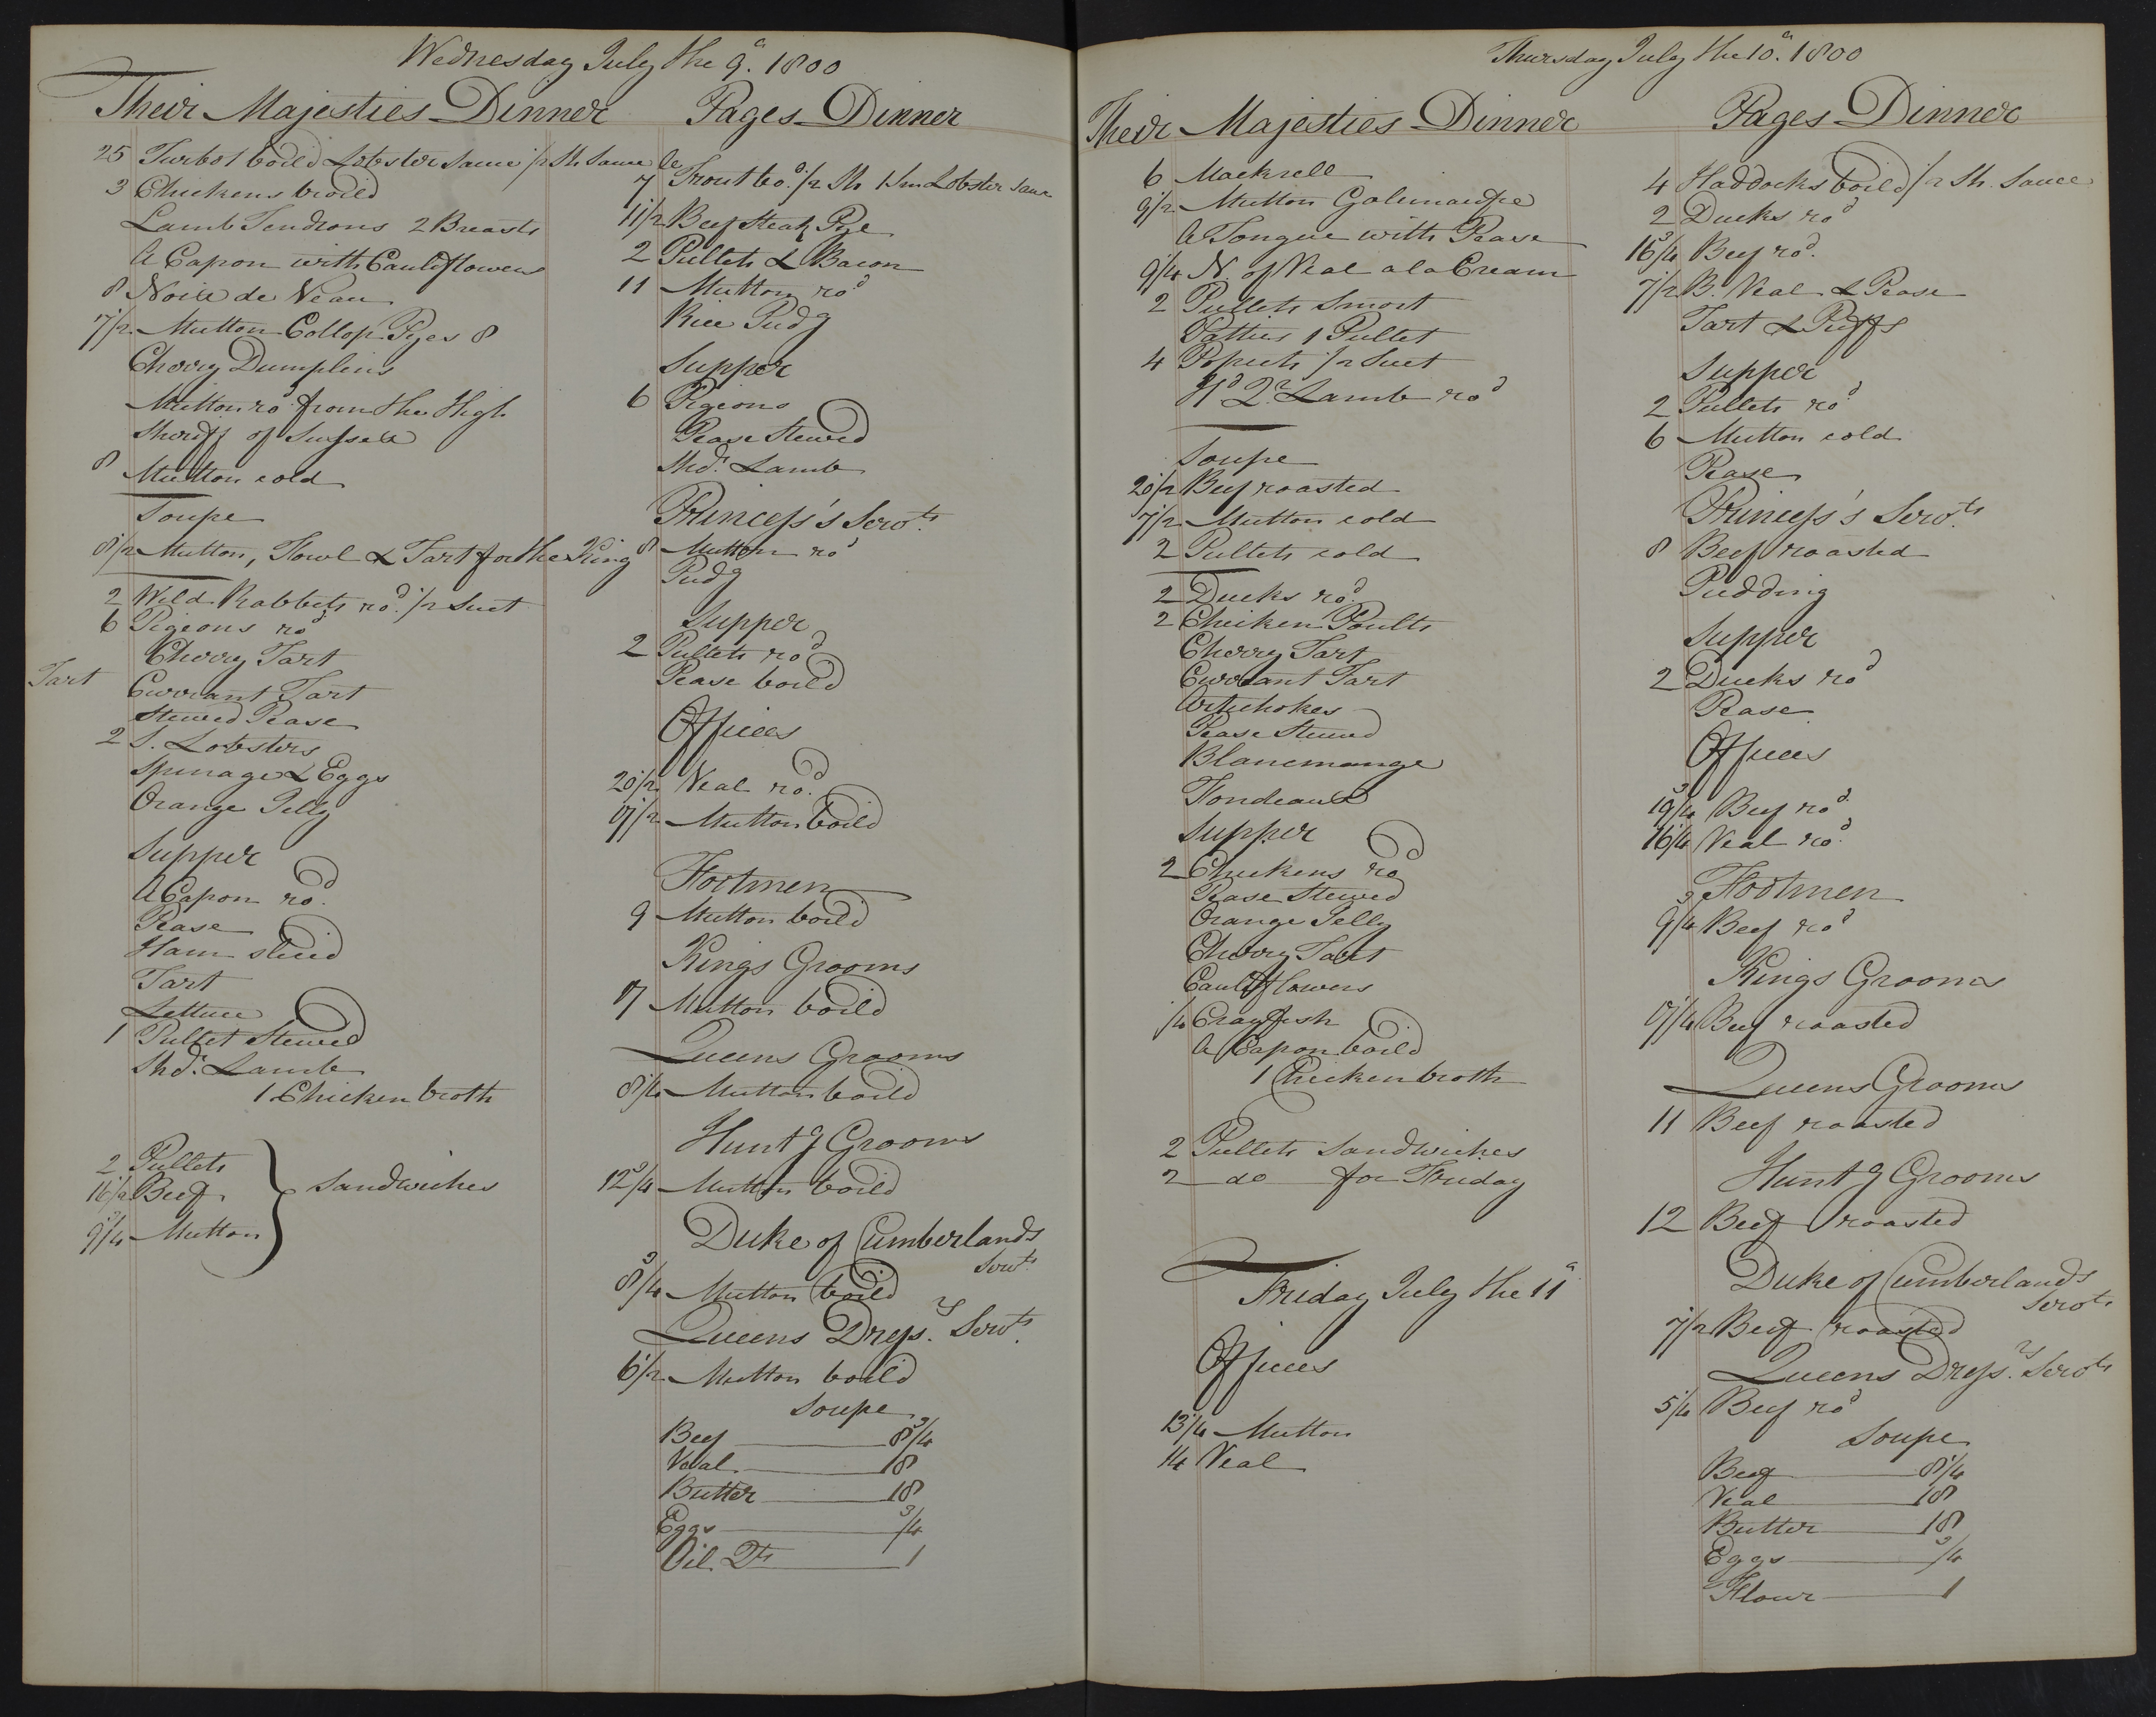 Wednesday July the 9th. 1800
Their Majesties Dinner
25 Turbot boild Lobster Sauce 1/2 Sh. Sauce
3 Chickens broild
Lamb Tendrons 2 Breasts
A Capon with Cauliflowers
8 Noix de Veau
7 1/2 Mutton Collop Pyes 8
Cherry Dumplins
Mutton rod from the High
Sheriff of Sussex
8 Mutton cold
Soupe
8 1/2 Mutton, Fowl & Tart for the King
2 Wild Rabbits rod. 1/2 Suet
6 Pigeons rod
Cherry Tart
Tart
Currant Tart
Stewed Pease
2 S. Lobsters
Spinage & Eggs
Orange Jelly
Supper
A Capon rod.
Pease
Ham slic'd
Tart
Lettuce
1 Pullet Stewed
Shdr. Lamb
1 Chicken broth
2 Pullets
Beef
Mutton
Sandwiches
Pages Dinner
7 Trout bod. 1/2 Sh 1 Sm Lobster Sauce
11 1/2 Beef Steak Pye
2 Pullets & Bacon
11 Mutton rod
Rice Pudg
Supper
6 Pigeons
Pease Stewed
Shdr. Lamb
Princess's Servts.
8 Mutton rod
Pudg
Supper
2 Pullets rod
Pease boild
Offices
20 1/2 Veal rod.
Mutton boild
Footmen
9 Mutton boild
Kings Grooms
Mutton boild
Queens Grooms
8 1/4 Mutton boild
Huntg Grooms
12 3/4 Mutton boild
Duke of Cumberlands
Servts
8 3/4 Mutton boild
Queens Dressrs. Servts.
6 1/2 Mutton boild
Soupe
Beef 8 3/4
Veal 18
Butter 18
Eggs 3/4
Oil Qts 1
Thursday July the 10th. 1800
Their Majesties Dinner
6 Mackrell
9 1/2 Mutton
A Tongue with Pease
9 1/4 N. of Veal a la Cream
2 Pullets Smort
Patties 1 Pullet
4 Popiets 1/2 Suet
Hd Qr. Lamb rod
Soupe
20 1/2 Beef roasted
7 1/2 Mutton cold
2 Pullets cold
2 Ducks rod.
2 Chicken Poults
Cherry Tart
Currant Tart
Artichokes
Pease Stewed
Blancmange
Fondeaux
Supper
2 Chickens rod
Pease Stewed
Orange Jelly
Cherry Tart
Cauliflowers
1/4 Crayfish
A Capon boild
1 Chicken broth
2 Pullets Sandwiches
2 do for Friday
Friday July the 11th
Offices
13 1/4 Mutton
14 Veal
Pages Dinner
4 Haddocks boild 1/2 Sh. Sauce
2 Ducks rod
16 3/4 Beef rod.
7 1/2 B. Veal & Pease
Tart & Puffs
Supper
2 Pullets rod
6 Mutton cold
Pease
Princess's Servts.
8 Beef roasted
Pudding
Supper
2 Ducks rod
Pease
Offices
19 3/4 Beef rod
16 1/4 Veal rod.
Footmen
9 3/4 Beef rod
Kings Grooms
Beef roasted
Queens Grooms
11 Beef roasted
Huntg Grooms
12 Beef roasted
Duke of Cumberlands
Servts
7 1/2 Beef roasted
Queens Dressrs. Servts
5 1/4 Beef rod
Soupe
Beef 8 1/4
Veal 18
Butter 18
Eggs 3/4
Flour 1